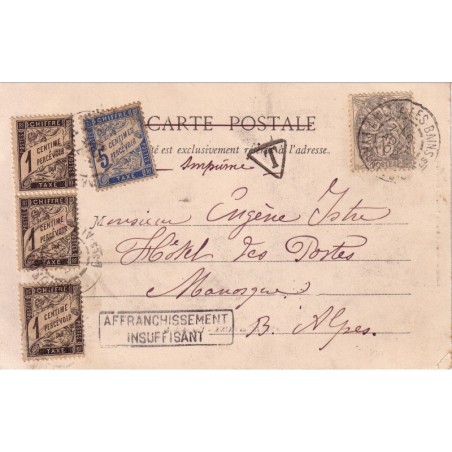 CARTE POSTALE
est exclusivement réservé à l'adresse.
Imprimé
T
Monsieur Eugène Istre
Hôtel des Postes
Manosque
B. Alpes.
AFFRANCHISSEMENT
INSUFFISANT
CHIFFRE
1
CENTIME
À
PERCEVOIR
TAXE
CHIFFRE
5
CENTIMES
À
PERCEVOIR
TAXE
1
CENTIME
À
PERCEVOIR
TAXE
CHIFFRE
1
CENTIME
À
PERCEVOIR
TAXE
LES BAINS